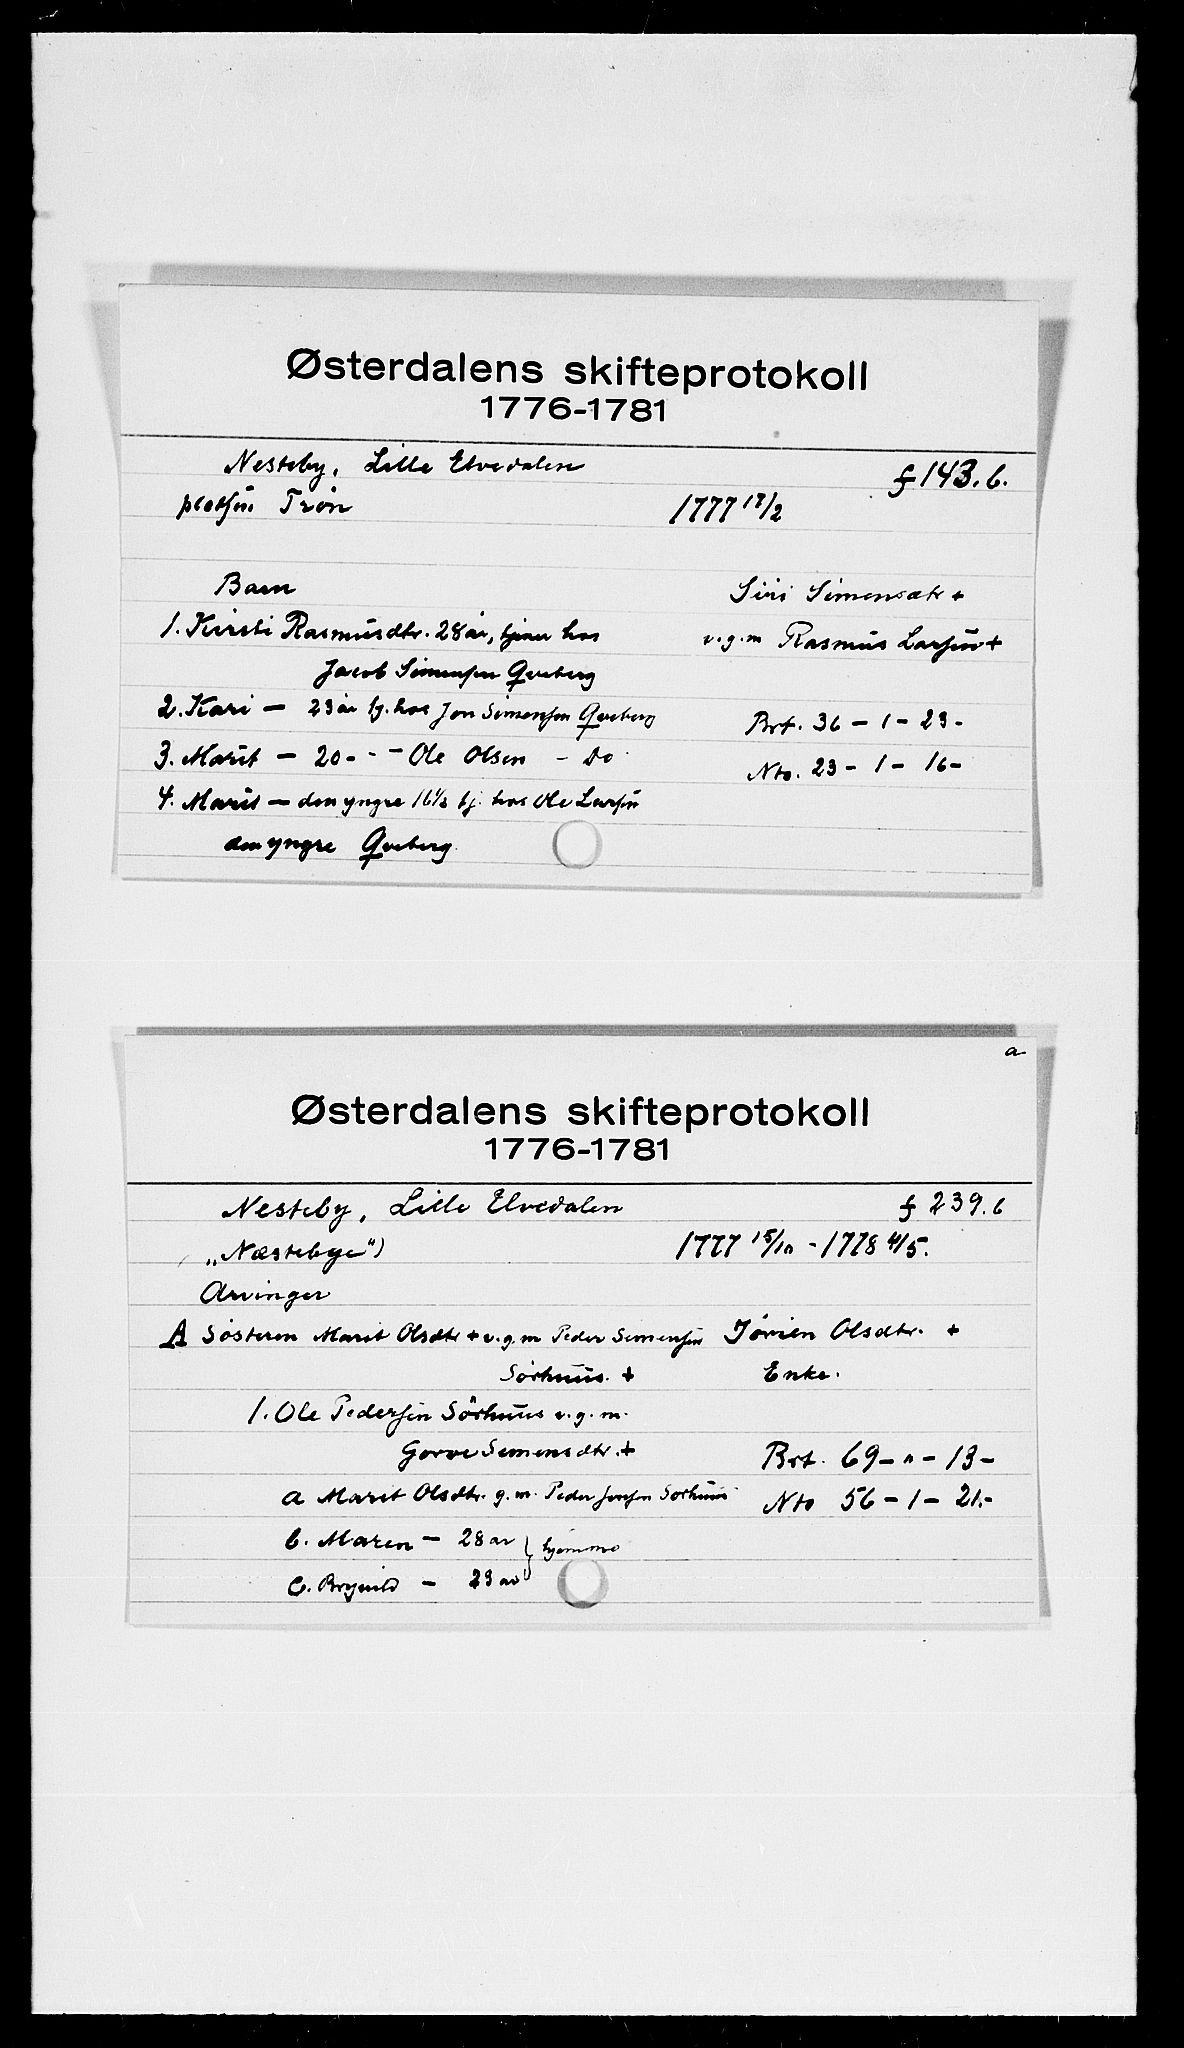 Østerdalens skifteprotokoll
1776-1781
Nesteby, Lille Elvedalen f 143.b.
platsen Trøn 1777 17/2
Barn Siri Simensdtr +
1. Kirsti Rasmusdtr. 28 år, tjener hos v.g.m Rasmus Larsen +
Jacob Simensen Qveberg
2. Kari — 23 år tj. hos Jon Simensen Qveberg Brt. 36 - 1 - 23 -
3. Marit — 20 - - — Ole Olsen - Do Nto. 23 - 1 - 16 -
4. Marit — den yngre 16½ tj. hos Ole Larsen
den yngre Qveberg
a
Østerdalens skifteprotokoll
1776-1781
Nesteby, Lille Elvedalen f 239.b
„Næstebye") 1777 15/10 - 1778 4/5.
Arvinger
A Søsteren Marit Olsdtr + v.g.m Peder Simensen Jørien Olsdtr. +
Sörhuus. + Enke.
1. Ole Pedersen Sörhuus v.g.m.
Gorve Semensdtr. + Brt. 69 - " - 13 -
a Marit Olsdtr. g.m. Peder Jonsen Sorhuus Nto 56 - 1 - 21. -
b. Maren — 28 år } hjemme
c. Brynild — 23 år